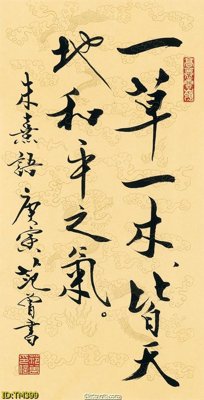 一草一木、皆天
地和平之氣。
朱熹語 庚寅 范曾書
ID:TN399